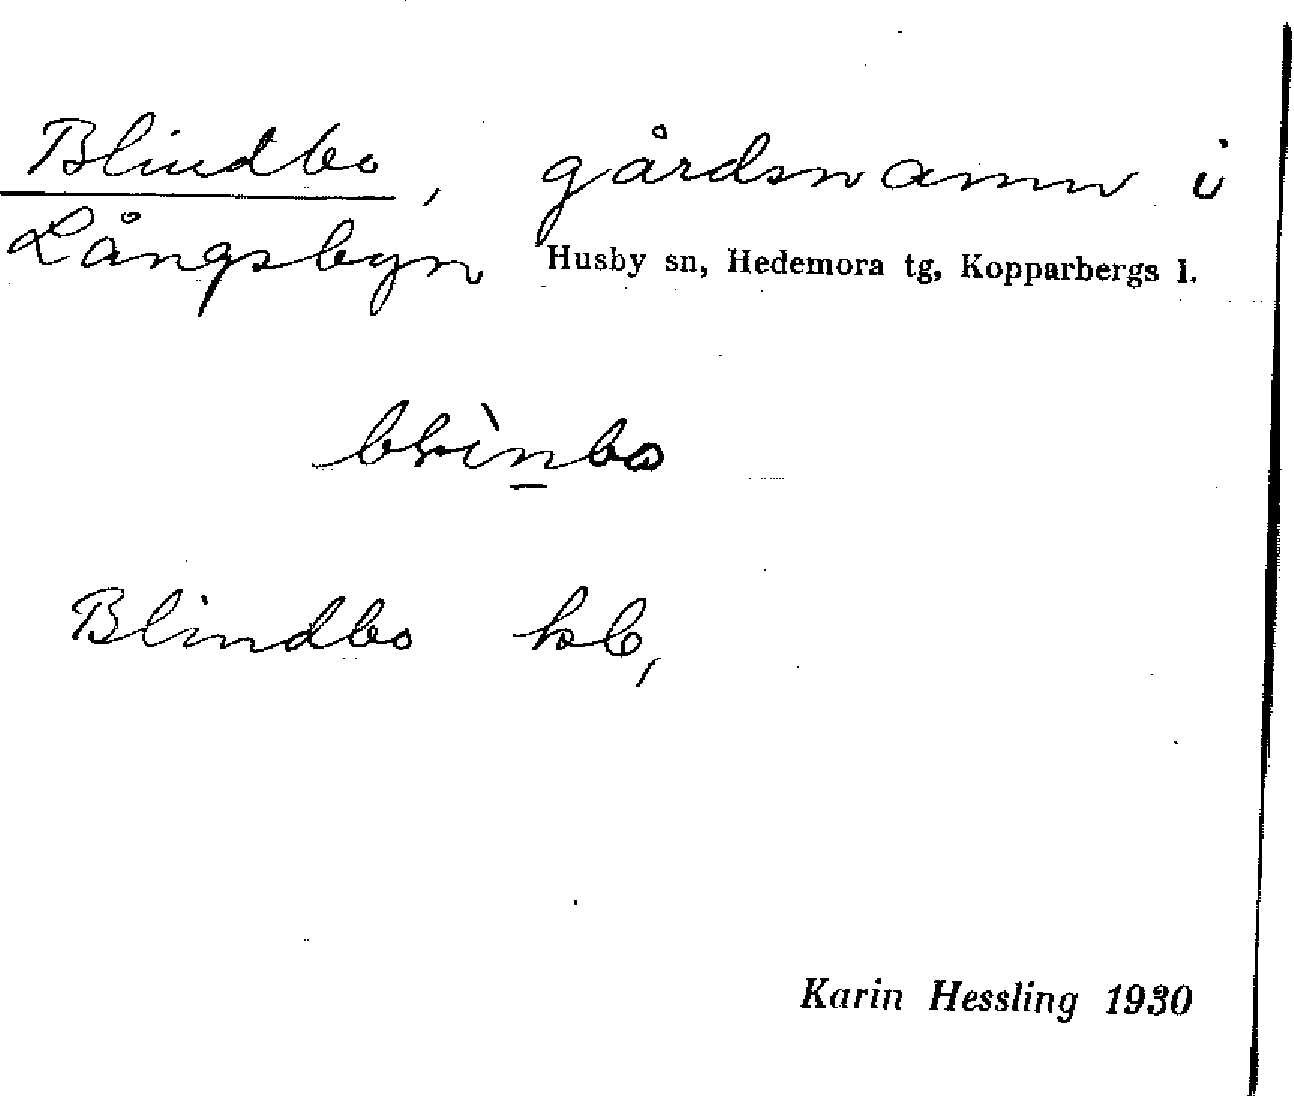 Blindbo, gårdsnamn i
Långsbyn Husby sn, Hedemora tg, Kopparbergs l.
Blindbo hb,
Karin Hessling 1930